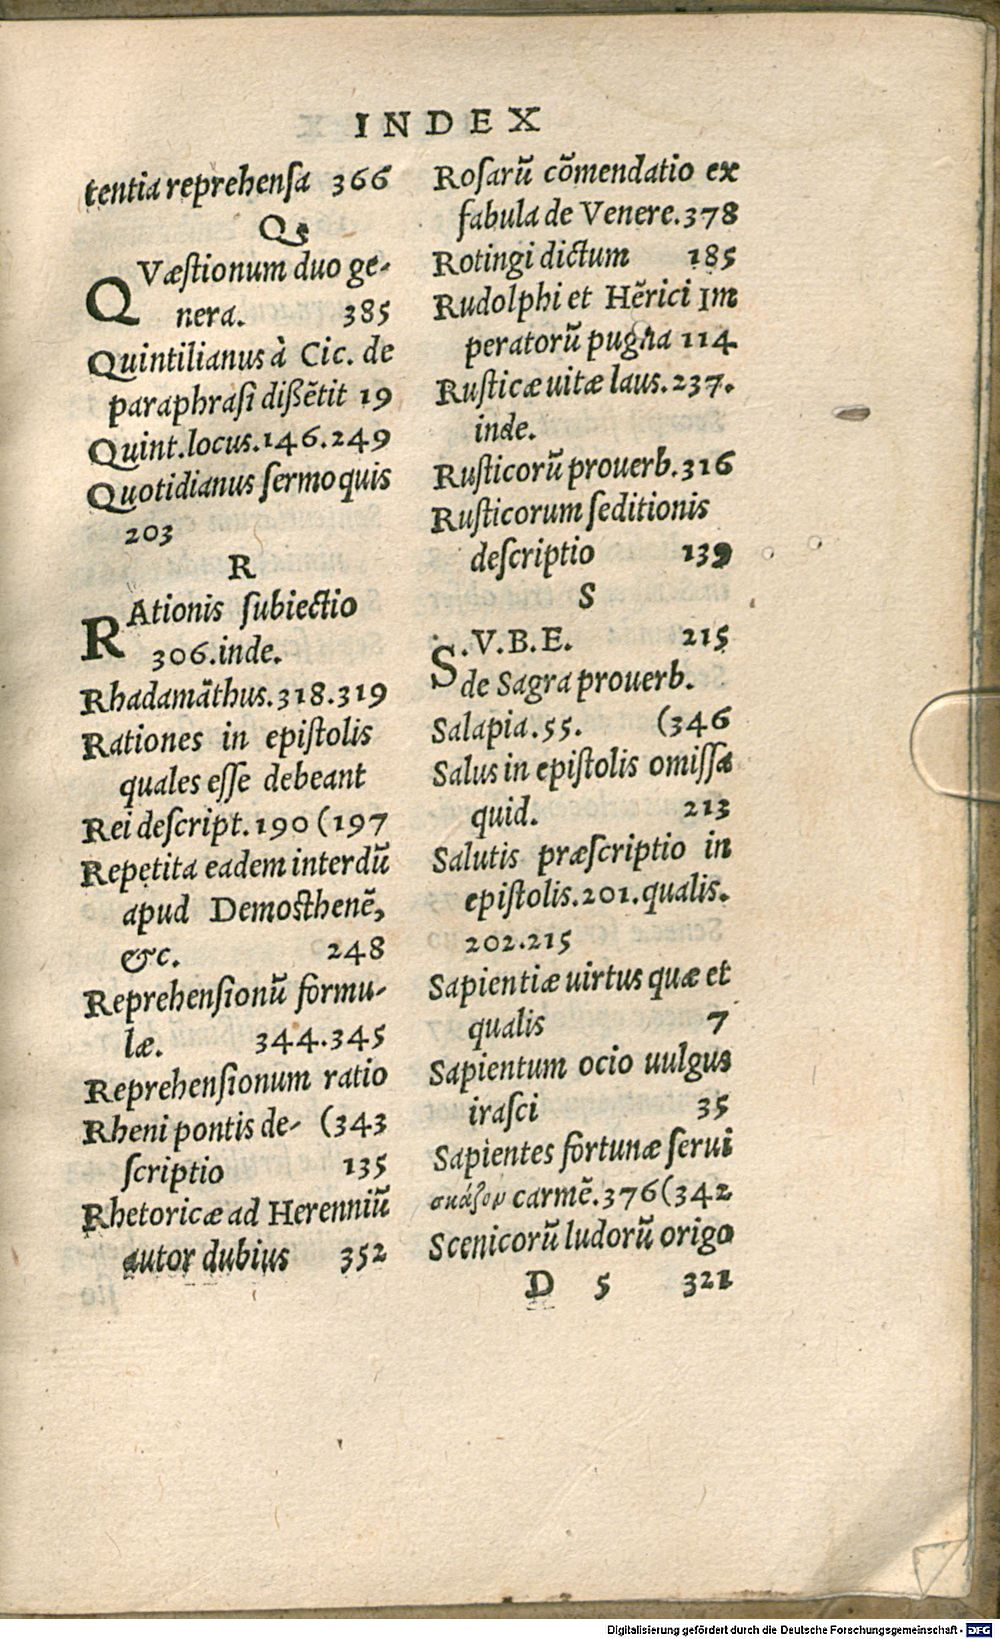 INDEX
tentia reprehensa 366
Q
QVæstionum duo ge-
nera. 385
Quintilianus à Cic. de
paraphrasi dißẽtit 19
Quint.locus.146.249
Quotidianus sermo quis
203
R
RAtionis subiectio
306.inde.
Rhadamãthus.318.319
Rationes in epistolis
quales esse debeant
Rei descript.190 (197
Repetita eadem interdũ
apud Demosthenẽ,
&c. 248
Reprehensionũ formu-
læ. 344.345
Reprehensionum ratio
Rheni pontis de- (343
scriptio 135
Rhetoricæ ad Herenniũ
autor dubius 352
Rosarũ cõmendatio ex
fabula de Venere.378
Rotingi dictum 185
Rudolphi et Hẽrici Im
peratorũ pugna 114
Rusticæ uitæ laus.237.
inde.
Rusticorũ prouerb.316
Rusticorum seditionis
descriptio 139
S
S.V.B.E. 215
de Sagra prouerb.
Salapia.55. (346
Salus in epistolis omissa
quid. 213
Salutis præscriptio in
epistolis.201.qualis.
202.215
Sapientiæ uirtus quæ et
qualis 7
Sapientum ocio uulgus
irasci 35
Sapientes fortunæ serui
σκάζον carmẽ.376(342
Scenicorũ ludorũ origo
D 5 321
Digitalisierung gefördert durch die Deutsche Forschungsgemeinschaft - DFG